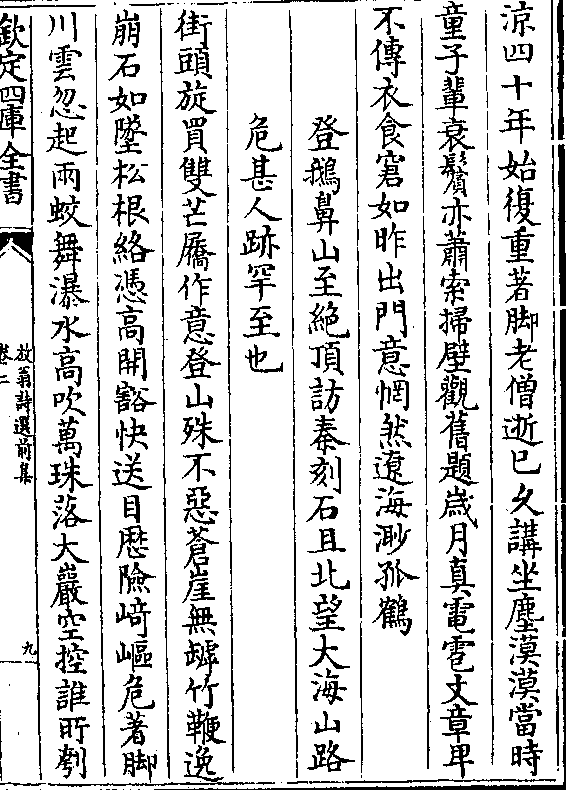 涼四十年始復重著脚老僧逝已久講坐塵漠漠當時
童子輩衰鬢亦蕭索掃壁觀舊題歲月真電雹文章卑
不傳衣食窘如昨出門意惘然遼海渺孤鶴
登鵝鼻山至絶頂訪秦刻石且北望大海山路
危甚人跡罕至也
街頭旋買雙芒屩作意登山殊不惡蒼崖無罅竹鞭逸
崩石如墜松根絡憑高開豁快送目歴險﨑嶇危著脚
川雲忽起雨蛟舞瀑水高吹萬珠落大巖空控誰所刳
欽定四庫全書
放翁詩選前集
卷二
九